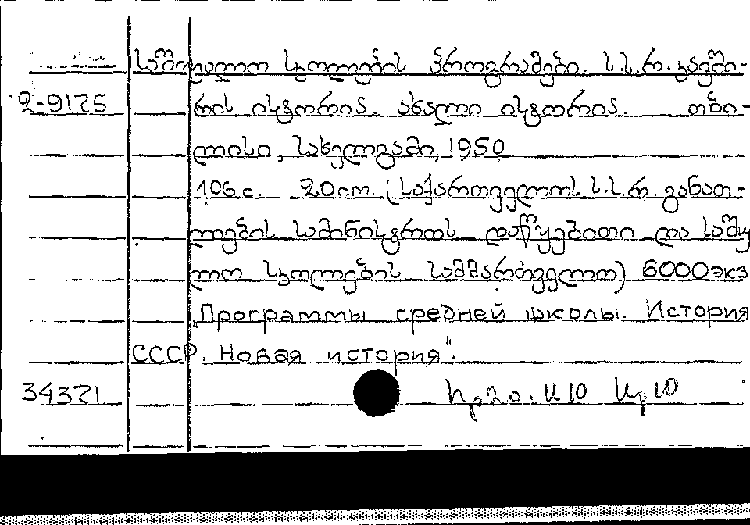 საშუალო სკოლების პროგრამები. ს.ს.რ. კავში-
2-9125 რის ისტორია. ახალი ისტორია. თბი-
ლისი, სახელგამი, 1950
106 с. 20 см. (საქართველოს ს.ს.რ. განათ-
ლების სამინისტროს დაწყებითი და საშუ
ლო სკოლების სამმართველო) 6000 экз
„Программы средней школы. История
СССР. Новая история".
34321